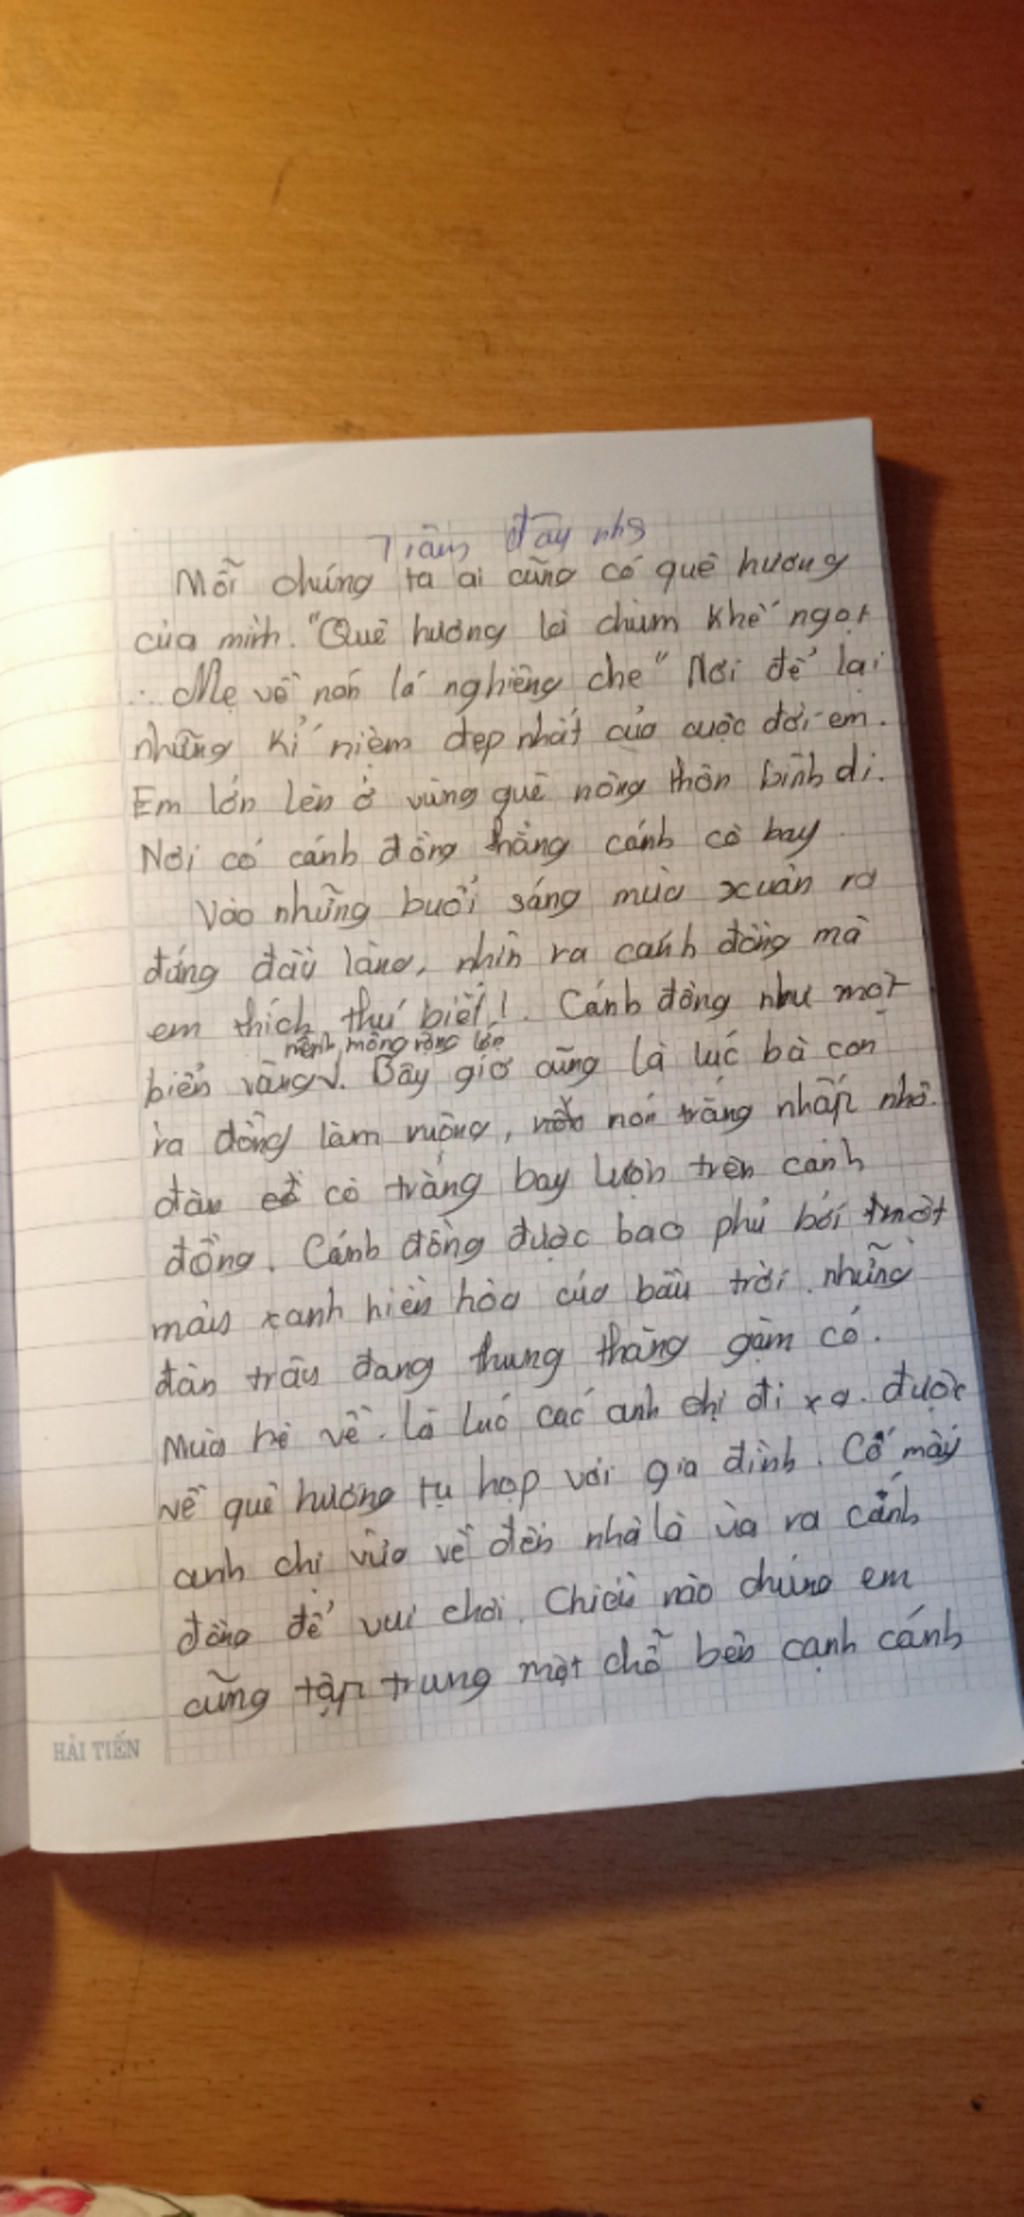 đây nhs
Mỗi chúng ta ai cũng có quê hương
của mình. "Quê hương là chùm khế ngọt
Mẹ về nón lá nghiêng che" Nơi để lại
những kỉ niệm đẹp nhất của cuộc đời em.
Em lớn lên ở vùng quê nông thôn bình dị.
Nơi có cánh đồng thẳng cánh cò bay
Vào những buổi sáng mùa xuân ra
đứng đầu làng, nhìn ra cánh đồng mà
em thích thú biết! Cánh đồng như một
mênh mông rộng lớn
biển vàng. Bây giờ cũng là lúc bà con
ra đồng làm ruộng, nón trắng nhấp nhô.
đàn cò trắng bay lượn trên cánh
đồng. Cánh đồng được bao phủ bởi một
màu xanh hiền hòa của bầu trời. những
đàn trâu đang thung thăng gặm cỏ.
Mùa hè về. Là lúc các anh chị đi xa. được
về quê hương tụ họp với gia đình. Có mấy
anh chị vừa về đến nhà là ùa ra cánh
đồng để vui chơi. Chiều nào chúng em
cũng tập trung một chỗ bên cạnh cánh
HẢI TIẾN